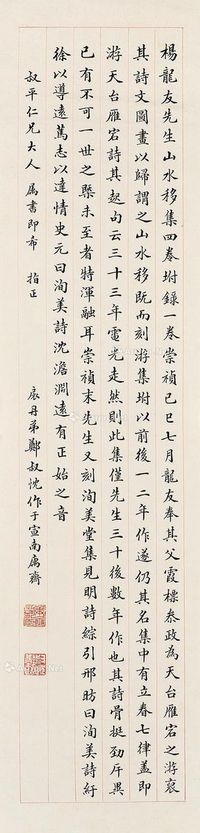 楊龍友先生山水移集四卷坿錄一卷崇禎己巳七月龍友奉其父霞標叅政為天台雁宕之游裒
其詩文圖畫以歸謂之山水移既而刻將集坿以前後一二年作遂仍其名集中有立春七律蓋即
游天台雁宕詩其起句云三十三年電光走然則此集僅先生三十後數年作也其詩骨挺勁厈異
已有不可一世之槩未至者特渾融耳崇禎末先生又刻洵美堂集見明詩綜引邢昉曰洵美詩紆
徐以導遠篤志以達情史元曰洵美詩沈澹淵遠有正始之音
叔平仁兄大人 屬書即希 指正
庚丹弟鄭叔忱作于宣南寓齋